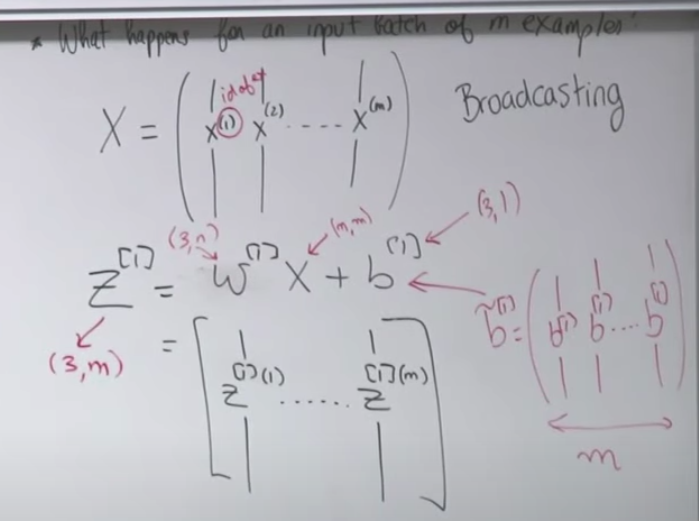 * What happens for an input batch of m examples?
X = ( | | | x^(1) x^(2) ----- x^(m) | | | )
Broadcasting
(3,n) (n,m) (3,1)
Z^[1] = W^[1] X + b^[1]
(3,m)
= [ | | z^[1](1) ...... z^[1](m) | | ]
b̃^[1] = ( | | | b^[1] b^[1] .... b^[1] | | | )
m